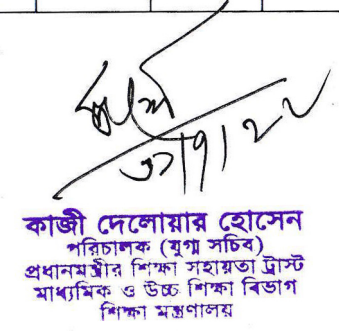 কাজী দেলোয়ার হোসেন
পরিচালক (যুগ্ম সচিব)
প্রধানমন্ত্রীর শিক্ষা সহায়তা ট্রাস্ট
মাধ্যমিক ও উচ্চ শিক্ষা বিভাগ
শিক্ষা মন্ত্রণালয়